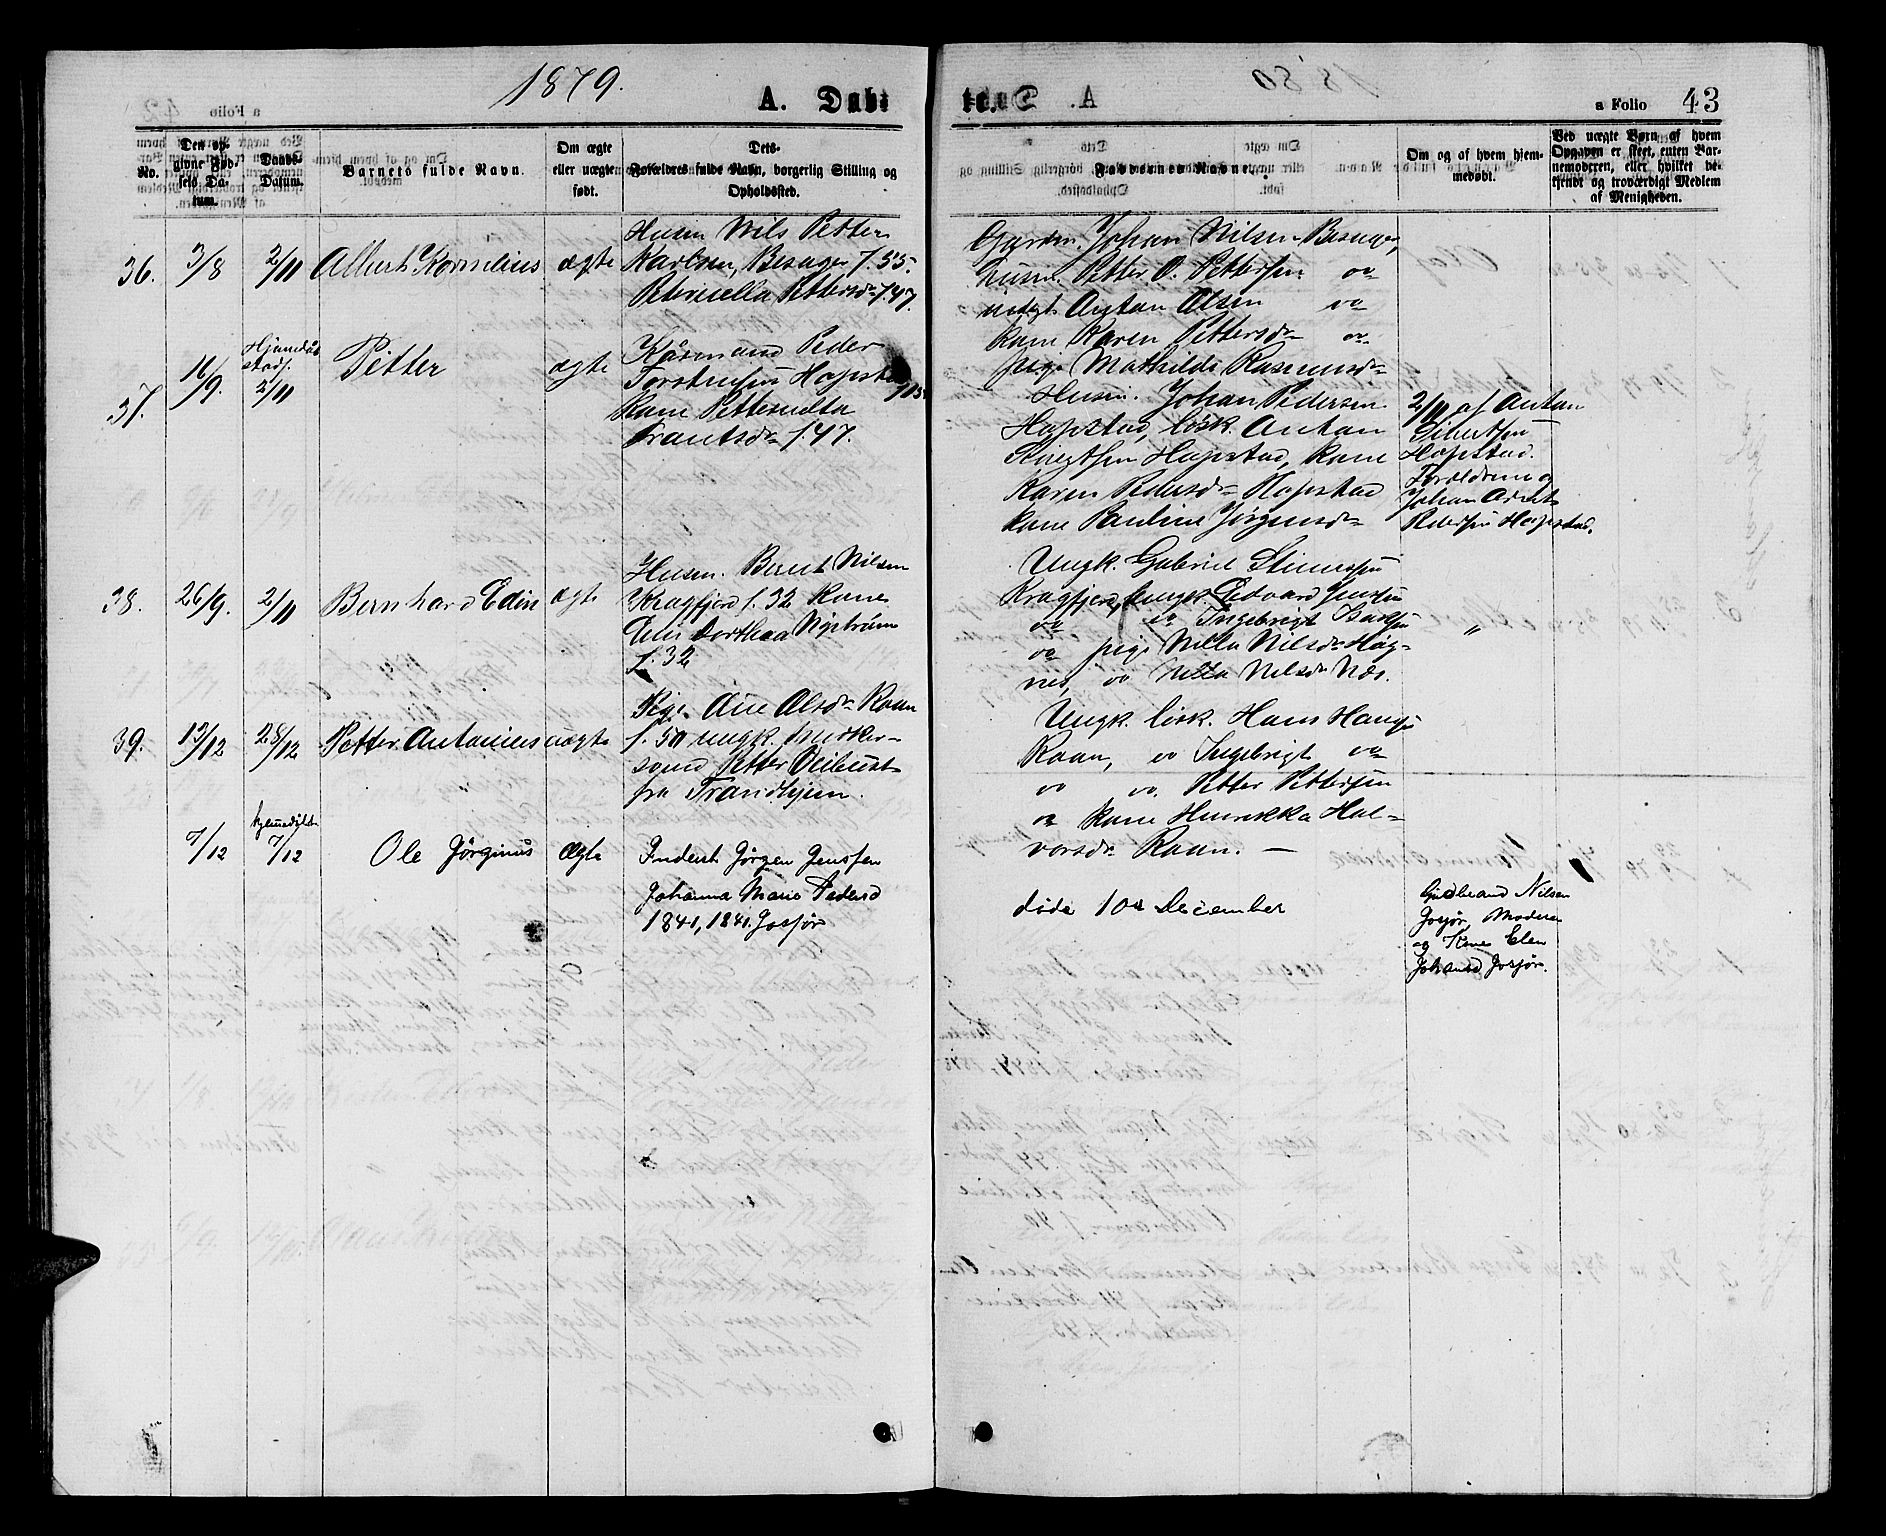 1879.
A. Døbt
a Folio 43
No.
Den opgivne Fødsels Datum.
Daabs-Datum.
Barnets fulde Navn.
Om ægte eller uægte født.
Dets Forældres fulde Navn, borgerlig Stilling og Opholdssted.
Faddernes Navne.
Om og af hvem hjemmedøbt.
Ved uægte Børn af hvem Opgaven er skeet, enten Barnemoderen, eller hvilket bekjendt og troværdigt Medlem af Menigheden.
36.
3/8
2/11
Albert Kornelius
ægte
Husm Nils Petter
Karlsen, Besager f. 55.
Peternella Pettersdr f. 47.
Gardm. Johan Nilsen Besager,
husm. Petter O. Pettersen oo
Anton Olsen oo
kone Karen Pettersdr oo
pige Mathilde Rasmusdr
37.
11/9.
2/11
Petter
ægte
Kårmand Peder
Hopstad
kone
Frantsdr f. 47.
Husm. Johan Pedersen
Hopstad, løsk. Anton
Hopstad, kone
Karen Pedersdr Hopstad
kone Pauline Jørgensdr
2/11 af Anton
Sivertsen
Hopstad.
Forældrene og
Johan Arnt
Pedersen Hopstad.
38.
26/9.
2/11
Bernhard Edin
ægte
Husm. Bernt Nilsen
Kragfjord f. 32 kone
Elen Dorthea Nystrøm
f. 32
Ungk. Gabriel
Kragfjord, ungk. Edvard Jensen
oo oo Ingebrigt
oo pige Nilla Nilsdr Høg-
nes, oo Nilla Nilsdr Næs.
"
39.
13/12
28/12
Petter Antonius
uægte
Pige Ane Olsdr Raan
f. 50 ungk. husker-
svend Petter
fra Trondhjem.
Ungk. løsk. Hans
Raan, oo Ingebrigt oo
oo oo. Petter Pettersen
oo kone Henrikka Hal-
vorsdr Raan. —
7/12
7/12
Ole Jørginus
Ægte
Inderst Jørgen Jenssen
Johanna Marie Pedersd
1841, 1841. Josjør
døde 10de December
Gudbrand Nilsen
Josjør Moderen
og Kone Elen
Johansd Josjør.